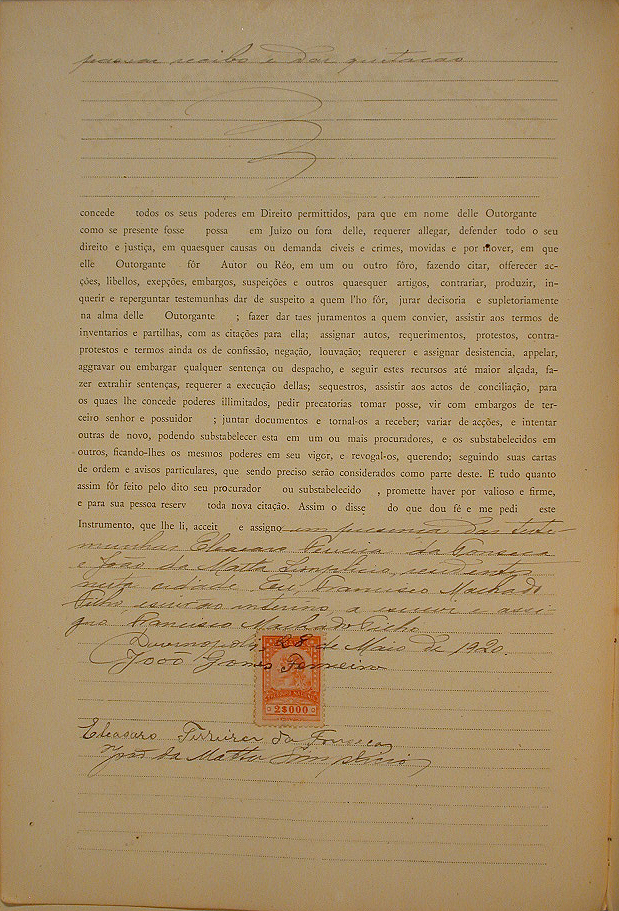 passar recibo e dar quitacão
concede todos os seus poderes em Direito permittidos, para que em nome delle Outorgante
como se presente fosse possa em Juizo ou fora delle, requerer allegar, defender todo o seu
direito e justiça, em quaesquer causas ou demanda civeis e crimes, movidas e por mover, em que
elle Outorgante fôr Autor ou Réo, em um ou outro fôro, fazendo citar, offerecer ac-
ções, libellos, exepções, embargos, suspeições e outros quaesquer artigos, contrariar, produzir, in-
querir e reperguntar testemunhas dar de suspeito a quem l'ho fôr, jurar decisoria e supletoriamente
na alma delle Outorgante ; fazer dar taes juramentos a quem convier, assistir aos termos de
inventarios e partilhas, com as citações para ella; assignar autos, requerimentos, protestos, contra-
protestos e termos ainda os de confissão, negação, louvação; requerer e assignar desistencia, appelar,
aggravar ou embargar qualquer sentença ou despacho, e seguir estes recursos até maior alçada, fa-
zer extrahir sentenças, requerer a execução dellas; sequestros, assistir aos actos de conciliação, para
os quaes lhe concede poderes illimitados, pedir precatorias tomar posse, vir com embargos de ter-
ceiro senhor e possuidor ; juntar documentos e tornal-os a receber; variar de acções, e intentar
outras de novo, podendo substabelecer esta em um ou mais procuradores, e os substabelecidos em
outros, ficando-lhes os mesmos poderes em seu vigor, e revogal-os, querendo; seguindo suas cartas
de ordem e avisos particulares, que sendo preciso serão considerados como parte deste. E tudo quanto
assim fôr feito pelo dito seu procurador ou substabelecido , promette haver por valioso e firme,
e para sua pessoa reserv toda nova citação. Assim o disse do que dou fé e me pedi este
Instrumento, que lhe li, acceit e assigno em presença das teste-
munhas Eleasaro Ferreira da Fonseca
e João da Matta Simplicio, residentes
nesta cidade. Eu, Francisco Machado
Filho escrivão interino, a escrevi e assi-
gno Francisco Machado Filho
28 de Maio de 1920.
João Gomes Ferreira
2$000
Eleasaro Ferreira da Fonseca
João da Matta Simplicio